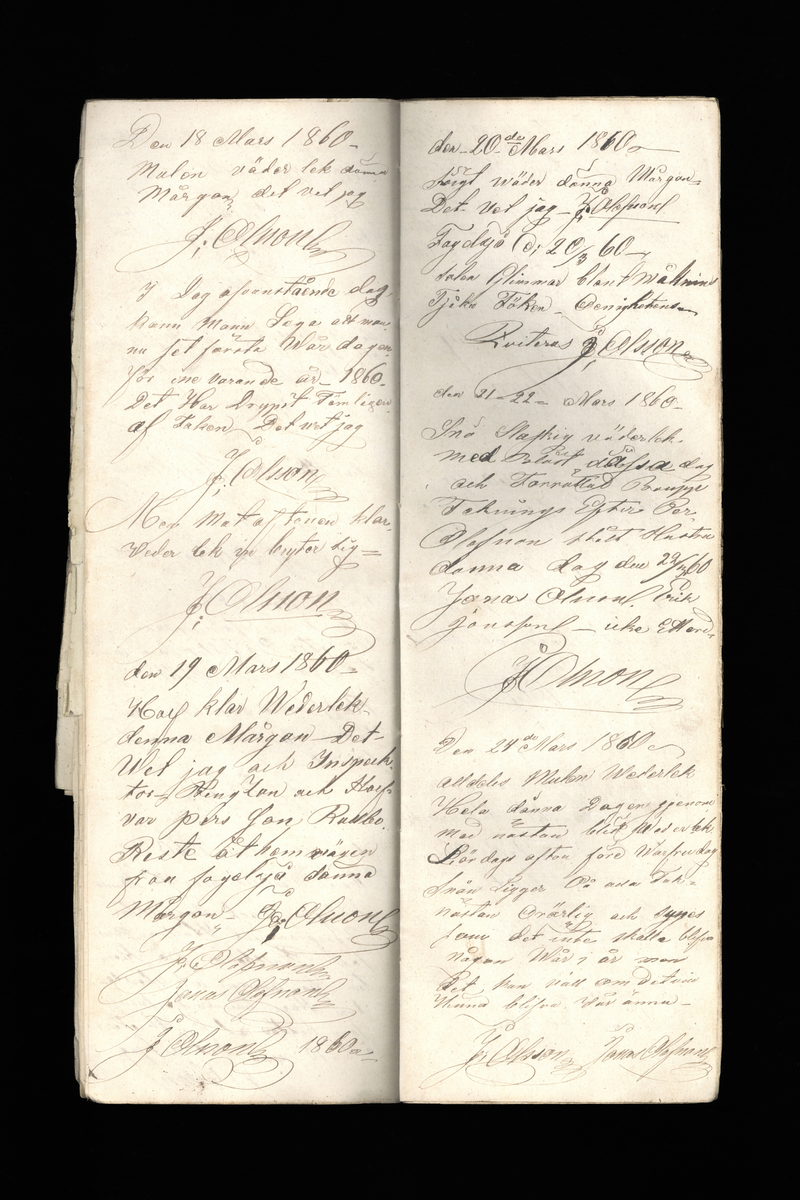 Den 18 Mars 1860
Mulen väder lek dänna
Mårgon det vet jag
J; Olsson
I Dag ofvanstående dag
kann Mann Säga att man
nu set första Wårdagen
för inevarande år 1860
Det Har Dryppit Tämligen
af Taken Det vet jag
J; Olsson
Men mot aftonen klar
Veder lek
J; Olsson
den 19 Mars 1860
Half klar Wederlek
denna Mårgon Det
Wet jag och Inspek
tor och
var pers Jon
Reste åt hem vägen
från fogelsjö denna
Mårgon J; Olsson
J; Olofsson
Jonas Olofsson
J Olsson 1860
den 20de Mars 1860
wäder denna Mårgon
Det Vet jag J; Olofsson
Fogelsjö D; 20/3 60
Solen Glimmar blant
Tjåka Töken
Qviteras J; Olsson
den 21 22 Mars 1860
Snö Slaskig väderlek
med Blåst dag
och
Teknings Efter Per
Olofsson Hustru
dänna dag den 23/3 60
Jonas Olsson Erik
Jonsson icke
J Olsson
Den 24de Mars 1860
alldeles Mulen Wederlek
Hela dänna Dagen igenom
med nästan blid Wederlek
Lördags afton förr Warfrudag
Snön Ligger På alla Tak
nästan och synes
som det inte skulle blifva
någon Wår i år men
det kan väll om det vill
kunna blifva Wår ännu
J; Olsson Jonas Olofsson